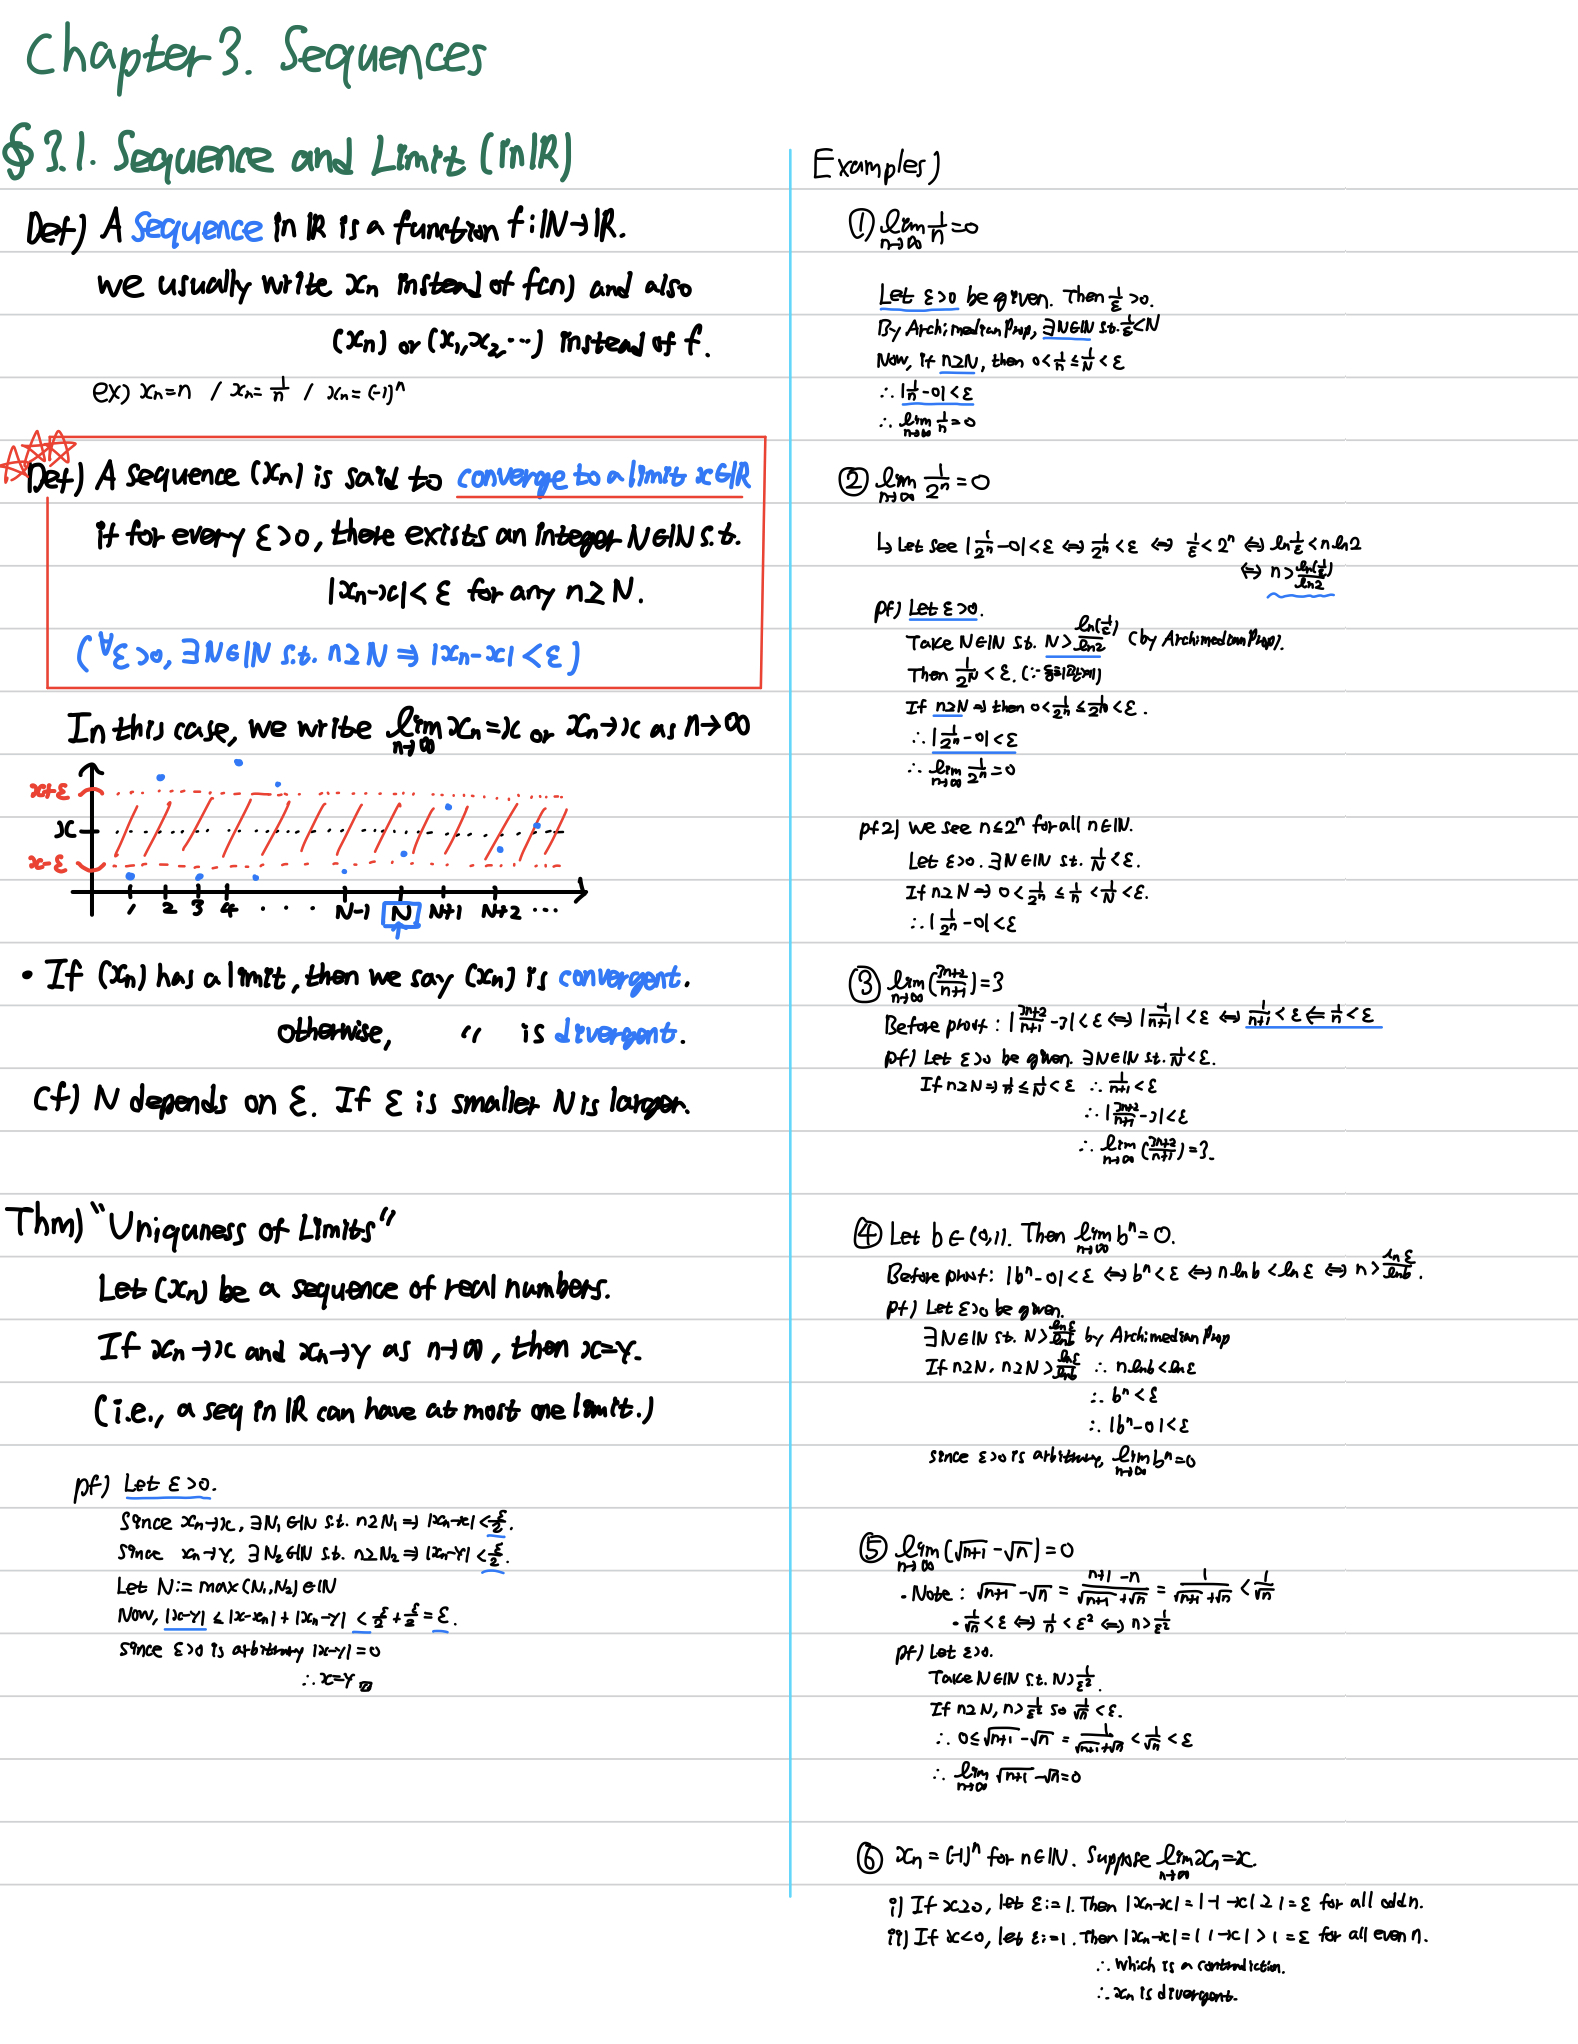 Chapter 3. Sequences
§ 3.1. Sequence and Limit (in ℝ)
Def) A sequence in ℝ is a function f: ℕ→ℝ.
we usually write xₙ instead of f(n) and also
(xₙ) or (x₁, x₂, ⋯) instead of f.
ex) xₙ=n / xₙ=1/n / xₙ=(-1)ⁿ
Def) A sequence (xₙ) is said to converge to a limit x∈ℝ
if for every ε>0, there exists an integer N∈ℕ s.t.
|xₙ-x|<ε for any n≥N.
(∀ε>0, ∃N∈ℕ s.t. n≥N ⇒ |xₙ-x|<ε)
In this case, we write lim n→∞ xₙ=x or xₙ→x as n→∞
x+ε
x
x-ε
1 2 3 4 · · · N-1 N N+1 N+2 ⋯
• If (xₙ) has a limit, then we say (xₙ) is convergent.
otherwise, 〃 is divergent.
cf) N depends on ε. If ε is smaller N is larger.
Thm) "Uniqueness of Limits"
Let (xₙ) be a sequence of real numbers.
If xₙ→x and xₙ→y as n→∞, then x=y.
(i.e., a seq in ℝ can have at most one limit.)
pf) Let ε>0.
Since xₙ→x, ∃N₁∈ℕ s.t. n≥N₁ ⇒ |xₙ-x|<ε/2.
Since xₙ→y, ∃N₂∈ℕ s.t. n≥N₂ ⇒ |xₙ-y|<ε/2.
Let N:= max(N₁,N₂)∈ℕ
Now, |x-y| ≤ |x-xₙ|+|xₙ-y| < ε/2+ε/2=ε.
since ε>0 is arbitrary |x-y|=0
∴ x=y
Examples)
① lim n→∞ 1/n=0
Let ε>0 be given. Then 1/ε>0.
By Archimedian Prop, ∃N∈ℕ s.t. 1/ε<N
Now, if n≥N, then 0<1/n≤1/N<ε
∴ |1/n-0|<ε
∴ lim n→∞ 1/n=0
② lim n→∞ 1/2ⁿ=0
↳ Let see |1/2ⁿ-0|<ε ⇔ 1/2ⁿ<ε ⇔ 1/ε<2ⁿ ⇔ ln 1/ε < n ln2
⇔ n> ln(1/ε)/ln2
pf) Let ε>0.
Take N∈ℕ s.t. N> ln(1/ε)/ln2 (by Archimedian Prop).
Then 1/2ᴺ<ε. (∵ 동치관계)
If n≥N ⇒ then 0<1/2ⁿ≤1/2ᴺ<ε.
∴ |1/2ⁿ-0|<ε
∴ lim n→∞ 1/2ⁿ=0
pf2) we see n≤2ⁿ for all n∈ℕ.
Let ε>0. ∃N∈ℕ s.t. 1/N<ε.
If n≥N ⇒ 0<1/2ⁿ≤1/n<1/N<ε.
∴ |1/2ⁿ-0|<ε
③ lim n→∞ (3n+2/n+1)=3
Before proof: |3n+2/n+1 -3|<ε ⇔ |-1/n+1|<ε ⇔ 1/n+1<ε ⇐ 1/n<ε
pf) Let ε>0 be given. ∃N∈ℕ s.t. 1/N<ε.
If n≥N ⇒ 1/n≤1/N<ε ∴ 1/n+1<ε
∴ |3n+2/n+1 -3|<ε
∴ lim n→∞ (3n+2/n+1)=3.
④ Let b∈(0,1). Then lim n→∞ bⁿ=0.
Before proof: |bⁿ-0|<ε ⇔ bⁿ<ε ⇔ n ln b<ln ε ⇔ n> ln ε/ln b.
pf) Let ε>0 be given.
∃N∈ℕ s.t. N> ln ε/ln b by Archimedian Prop
If n≥N, n≥N> ln ε/ln b ∴ n ln b<ln ε
∴ bⁿ<ε
∴ |bⁿ-0|<ε
since ε>0 is arbitrary, lim n→∞ bⁿ=0
⑤ lim n→∞ (√n+1 -√n)=0
• Note: √n+1 -√n = n+1-n/√n+1+√n = 1/√n+1+√n < 1/√n
• 1/√n<ε ⇔ 1/n<ε² ⇔ n>1/ε²
pf) Let ε>0.
Take N∈ℕ s.t. N>1/ε².
If n≥N, n>1/ε² so 1/√n<ε.
∴ 0≤√n+1 -√n = 1/√n+1+√n < 1/√n < ε
∴ lim n→∞ √n+1 -√n=0
⑥ xₙ=(-1)ⁿ for n∈ℕ. Suppose lim n→∞ xₙ=x.
i) If x≥0, let ε:=1. Then |xₙ-x|=|-1-x|≥1=ε for all odd n.
ii) If x<0, let ε:=1. Then |xₙ-x|=|1-x|>1=ε for all even n.
∴ which is a contradiction.
∴ xₙ is divergent.